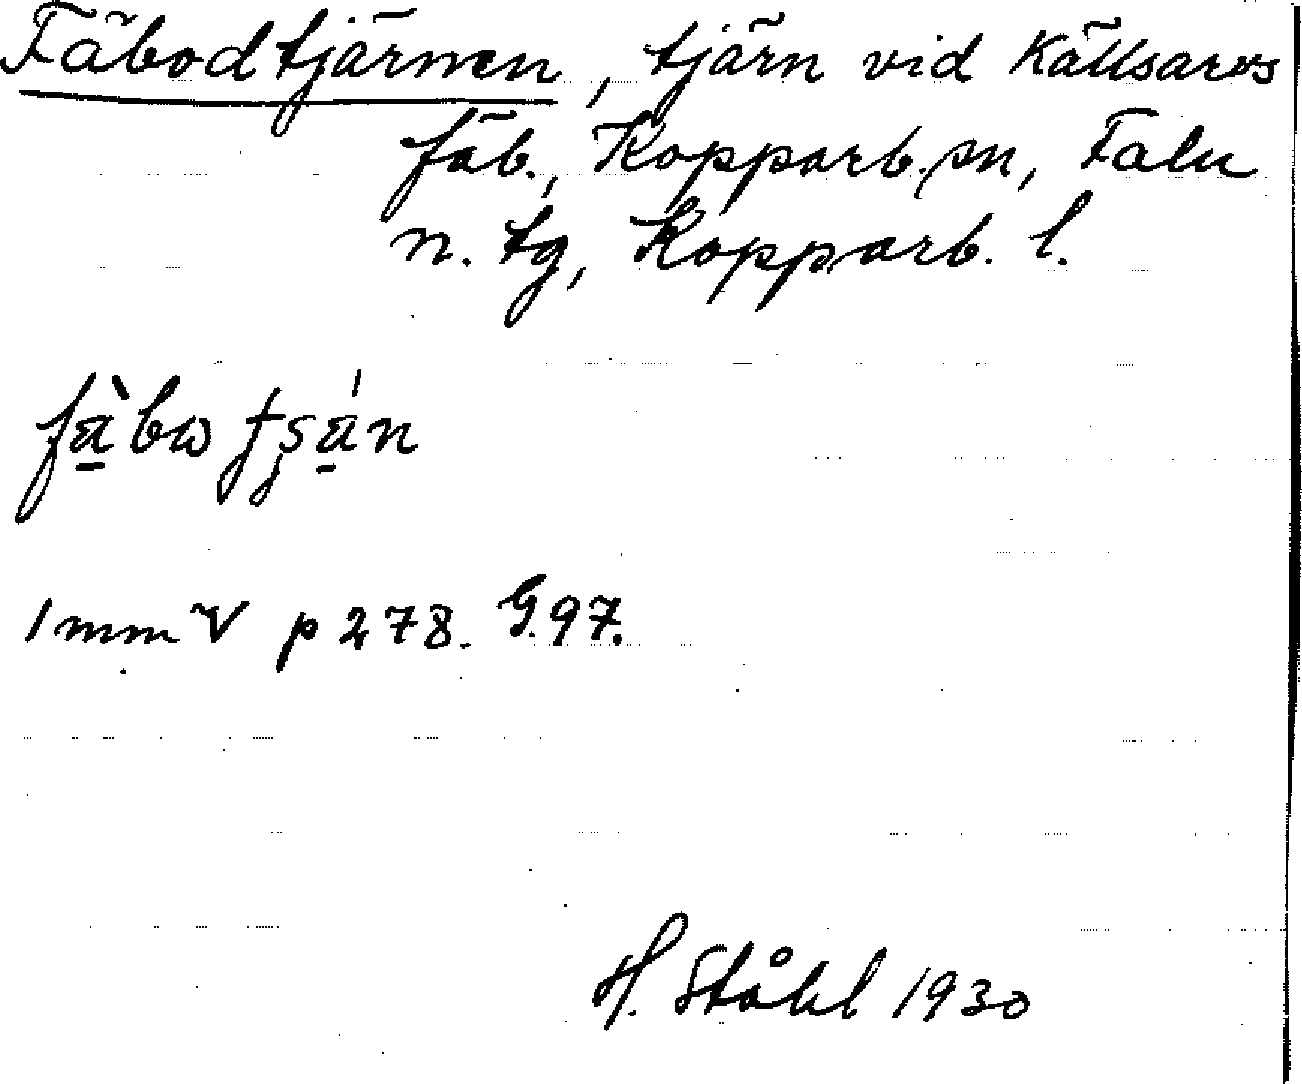 Fäbodtjärnen, tjärn vid Källsarvs
fäb., Kopparb. sn, Falu
n. tg, Kopparb. l.
1 mm V p 278. G. 97.
H. Ståhl 1930